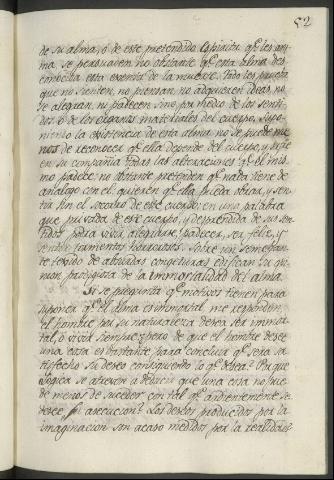 52
de su alma, ó de este pretendido Espiritu q.e les ani-
ma, se persuaden no obstante q.e esta alma des-
conocida esta exenta de la muerte. Todo les prueba
que no sienten, no piensan, no adquieren ideas, no
se alegran, ni padecen sino por medio de los senti-
dos, ó de los organos materiales del cuerpo. Supo-
niendo la existencia de esta alma no se puede me-
nos de reconocer q.e ella depende del cuerpo, y sufre
en su compañia todas las alteraciones q.e el mis-
mo padece: no obstante pretenden q.e nada tiene de
analogo con el: quieren q.e ella pueda obrar, y sen-
tir sin el socorro de este cuerpo: en una palabra
que privada de este cuerpo, y desprendida de sus sen-
tidos podra vivir, alegrarse, padecer, ser feliz, y
sentir tormentos rigurosos. Sobre un semejan-
te tejido de absurdas congeturas edifican la opi-
nion prodigiosa de la immortalidad del alma.
Si se pregunta q.e motivos tienen para
suponer q.e el alma es immortal, me responden,
el hombre por su naturaleza desea ser immor-
tal, ó vivir siempre; pero de que el hombre desee
una cosa es bastante para concluir q.e sera sa-
tisfecho su deseo consiguiendo lo q.e desea? Por que
Logica se atreven a deducir que una cosa no pue-
de menos de suceder con tal q.e ardientemente se
desee su execucion? Los deseos producidos por la
imaginacion son acaso medidos por la realidad?